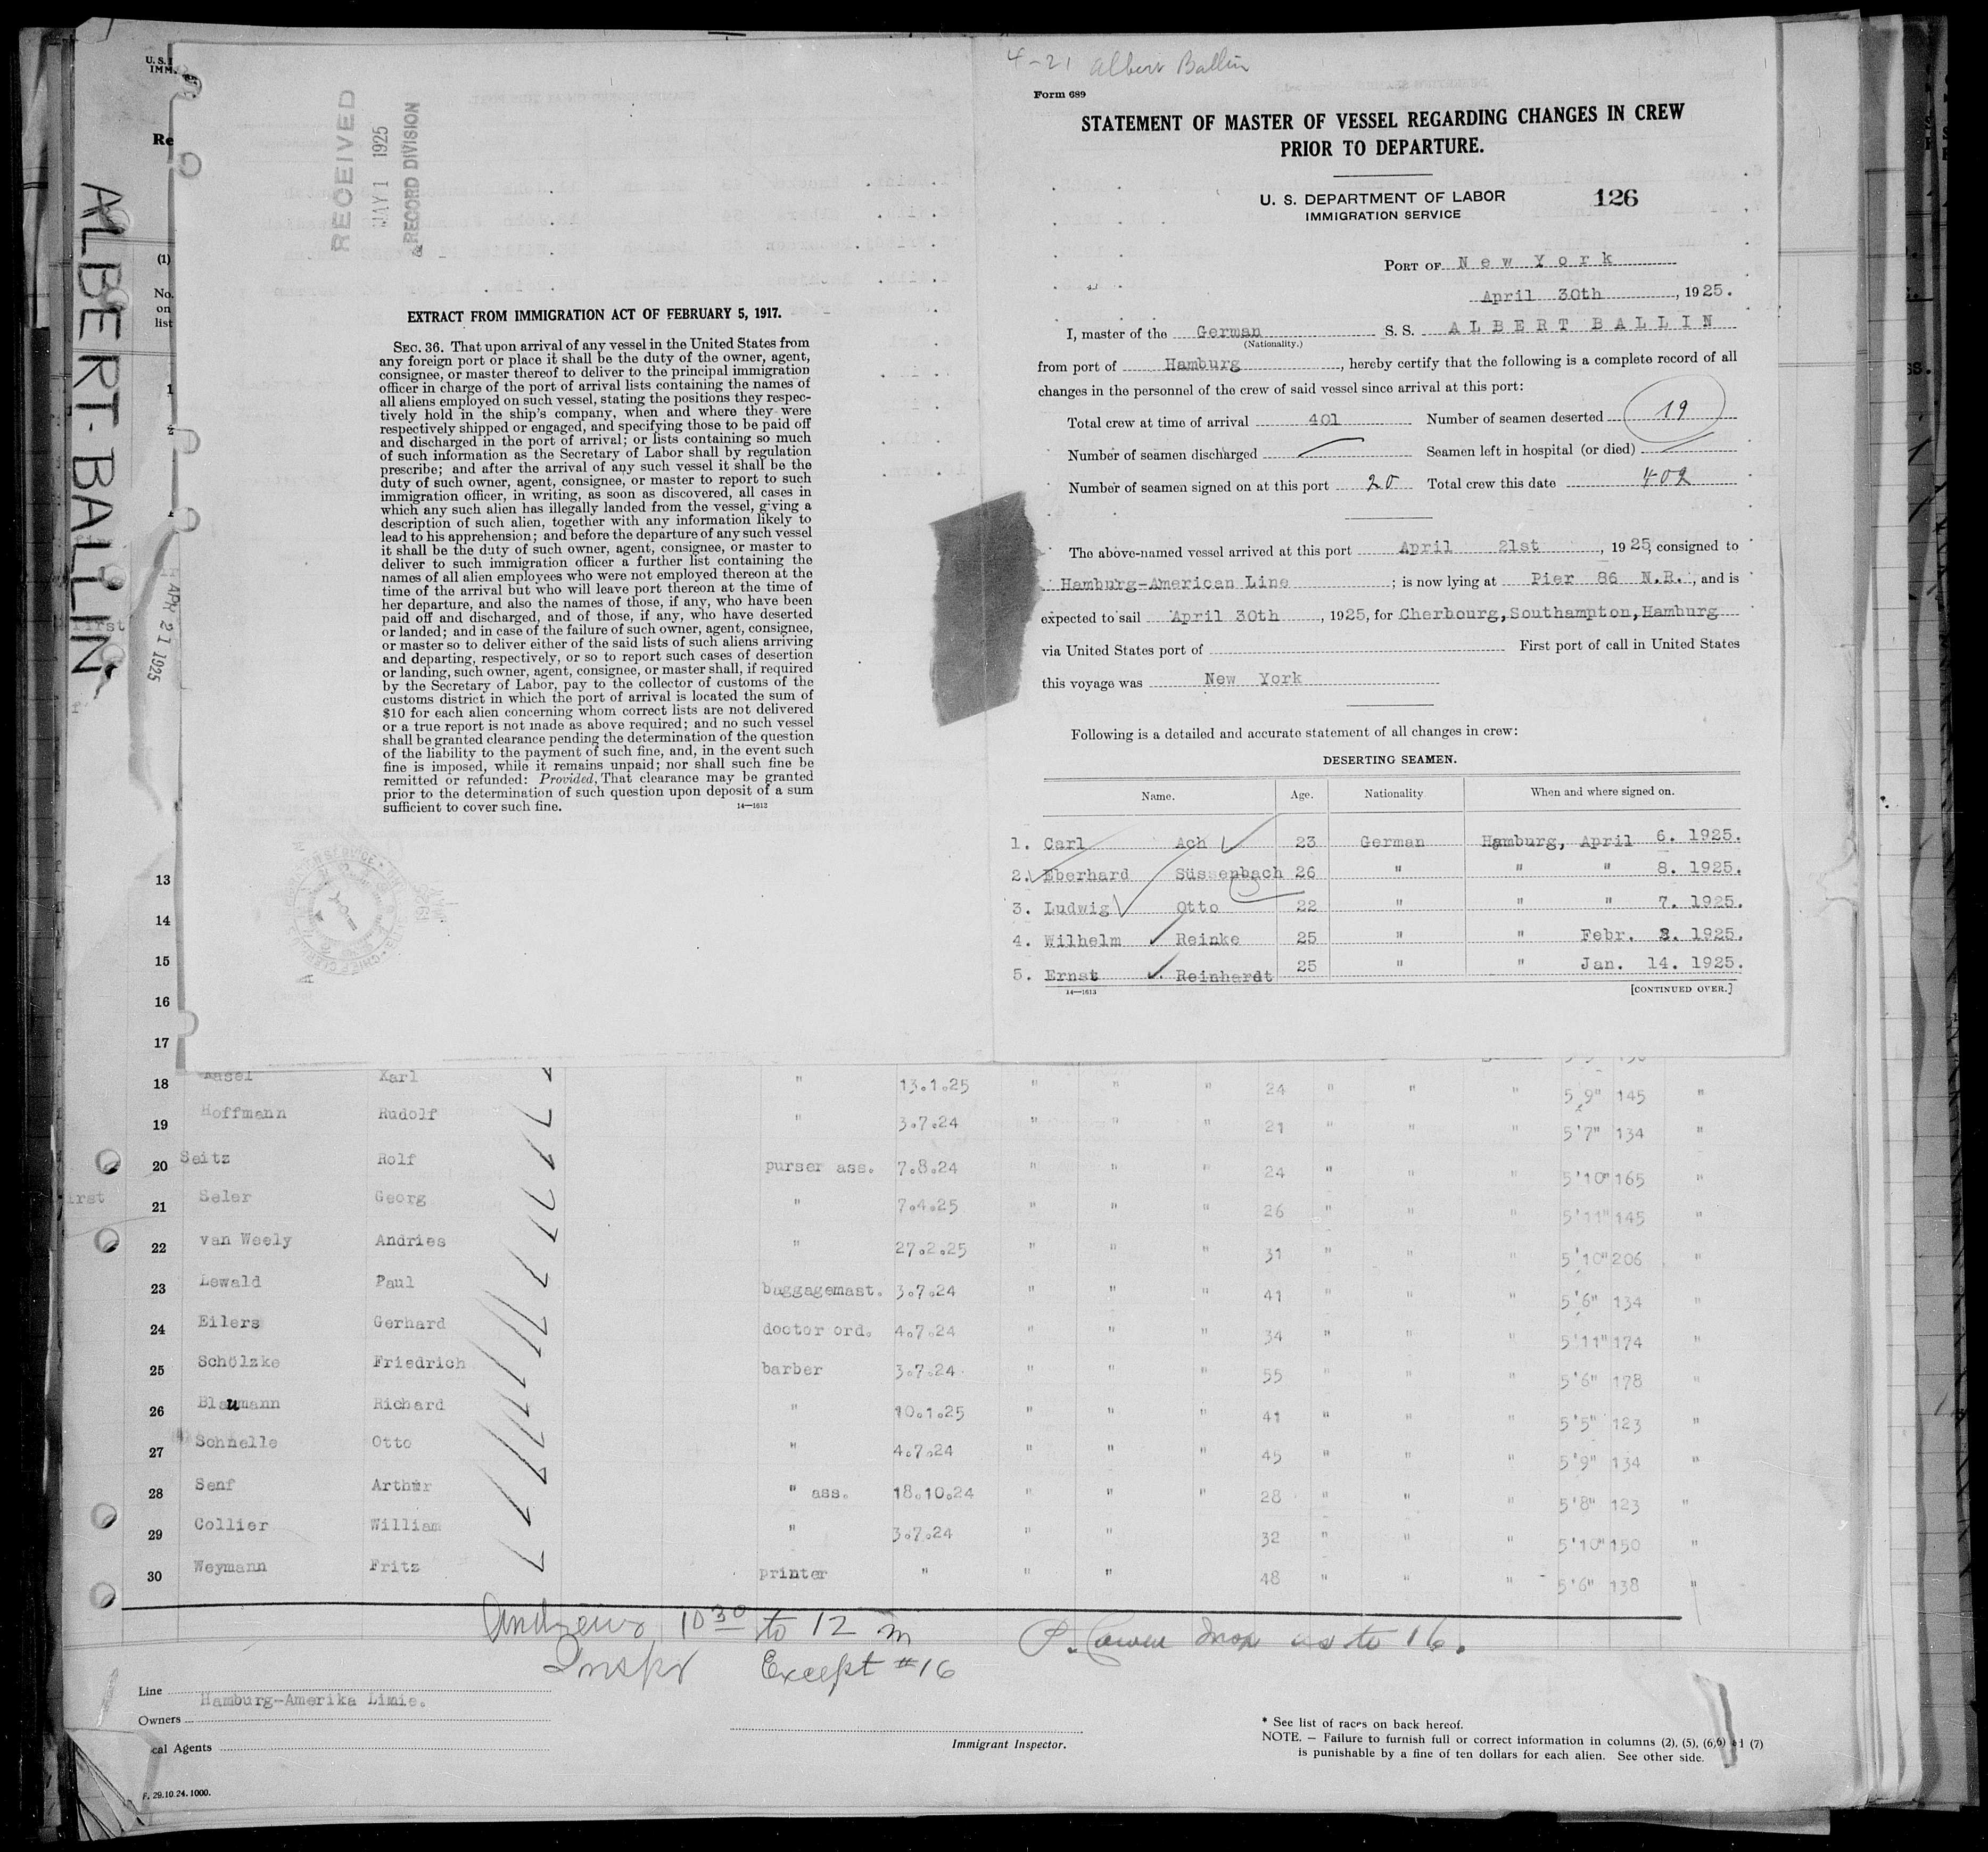 ALBERT-BALLIN
APR 21 1925
U.S.
IMM.
Re
(1)
No.
on
list
RECEIVED
MAY 1 1925
& RECORD DIVISION
EXTRACT FROM IMMIGRATION ACT OF FEBRUARY 5, 1917.
SEC. 36. That upon arrival of any vessel in the United States from
any foreign port or place it shall be the duty of the owner, agent,
consignee, or master thereof to deliver to the principal immigration
officer in charge of the port of arrival lists containing the names of
all aliens employed on such vessel, stating the positions they respec-
tively hold in the ship's company, when and where they were
respectively shipped or engaged, and specifying those to be paid off
and discharged in the port of arrival; or lists containing so much
of such information as the Secretary of Labor shall by regulation
prescribe; and after the arrival of any such vessel it shall be the
duty of such owner, agent, consignee, or master to report to such
immigration officer, in writing, as soon as discovered, all cases in
which any such alien has illegally landed from the vessel, giving a
description of such alien, together with any information likely to
lead to his apprehension; and before the departure of any such vessel
it shall be the duty of such owner, agent, consignee, or master to
deliver to such immigration officer a further list containing the
names of all alien employees who were not employed thereon at the
time of the arrival but who will leave port thereon at the time of
her departure, and also the names of those, if any, who have been
paid off and discharged, and of those, if any, who have deserted
or landed; and in case of the failure of such owner, agent, consignee,
or master so to deliver either of the said lists of such aliens arriving
and departing, respectively, or so to report such cases of desertion
or landing, such owner, agent, consignee, or master shall, if required
by the Secretary of Labor, pay to the collector of customs of the
customs district in which the port of arrival is located the sum of
$10 for each alien concerning whom correct lists are not delivered
or a true report is not made as above required; and no such vessel
shall be granted clearance pending the determination of the question
of the liability to the payment of such fine, and, in the event such
fine is imposed, while it remains unpaid; nor shall such fine be
remitted or refunded: Provided, That clearance may be granted
prior to the determination of such question upon deposit of a sum
sufficient to cover such fine. 14—1613
4-21 Albert Ballin
Form 689
STATEMENT OF MASTER OF VESSEL REGARDING CHANGES IN CREW
PRIOR TO DEPARTURE.
U. S. DEPARTMENT OF LABOR 126
IMMIGRATION SERVICE
PORT OF New York
April 30th, 1925.
I, master of the German S. S. ALBERT BALLIN
(Nationality.)
from port of Hamburg, hereby certify that the following is a complete record of all
changes in the personnel of the crew of said vessel since arrival at this port:
Total crew at time of arrival 401 Number of seamen deserted 19
Number of seamen discharged Seamen left in hospital (or died)
Number of seamen signed on at this port 20 Total crew this date 402
The above-named vessel arrived at this port April 21st, 1925, consigned to
Hamburg-American Line; is now lying at Pier 86 N.R., and is
expected to sail April 30th, 1925, for Cherbourg, Southampton, Hamburg
via United States port of First port of call in United States
this voyage was New York
Following is a detailed and accurate statement of all changes in crew:
DESERTING SEAMEN.
Name. Age. Nationality When and where signed on.
1. Carl Ach 23 German Hamburg, April 6. 1925.
2. Eberhard Süssenbach 26 " " " 8. 1925.
3. Ludwig Otto 22 " " " 7. 1925.
4. Wilhelm Reinke 25 " " Febr. 3. 1925.
5. Ernst Reinhardt 25 " " Jan. 14. 1925.
14—1613 [CONTINUED OVER.]
13
14
15
16
17
18 Karl " 13.1.25 " " " 24 " " " 5'9" 145 "
19 Hoffmann Rudolf " 3.7.24 " " " 21 " " " 5'7" 134 "
20 Seitz Rolf purser ass. 7.8.24 " " " 24 " " " 5'10" 165 "
21 Seler Georg " 7.4.25 " " " 26 " " " 5'11" 145 "
22 van Weely Andries " 27.2.25 " " " 31 " " " 5'10" 206 "
23 Lewald Paul baggagemast. 3.7.24 " " " 41 " " " 5'6" 134 "
24 Eilers Gerhard doctor ord. 4.7.24 " " " 34 " " " 5'11" 174 "
25 Schölzke Friedrich barber 3.7.24 " " " 55 " " " 5'6" 178 "
26 Blaumann Richard " 10.1.25 " " " 41 " " " 5'5" 123 "
27 Schnelle Otto " 4.7.24 " " " 45 " " " 5'9" 134 "
28 Senf Arthur " ass. 18.10.24 " " " 28 " " " 5'8" 123 "
29 Collier William " 3.7.24 " " 32 " " " 5'10" 150 "
30 Weymann Fritz printer " " " 48 " " " 5'6" 138 "
Andrews 10 30 to 12 m
Inspr Except #16
Insp as to 16.
Line Hamburg-Amerika Linie.
Owners
cal Agents
Immigrant Inspector.
* See list of races on back hereof.
NOTE. — Failure to furnish full or correct information in columns (2), (5), (6,6) (7)
is punishable by a fine of ten dollars for each alien. See other side.
F. 29.10.24.1000.